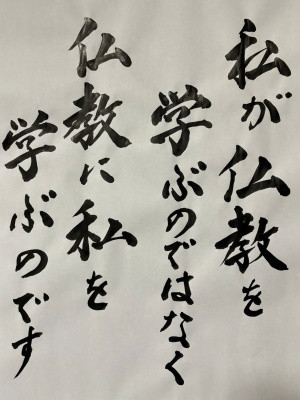 私が仏教を
学ぶのではなく
仏教に私を
学ぶのです